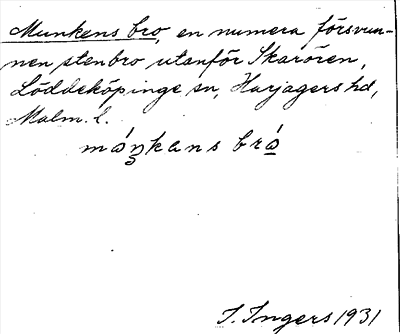 Munkens bro, en numera försvun-
nen stenbro utanför Skarören,
Löddeköpinge sn, Harjagers hd,
Malm. l.
máŋkans brá
I. Ingers 1931